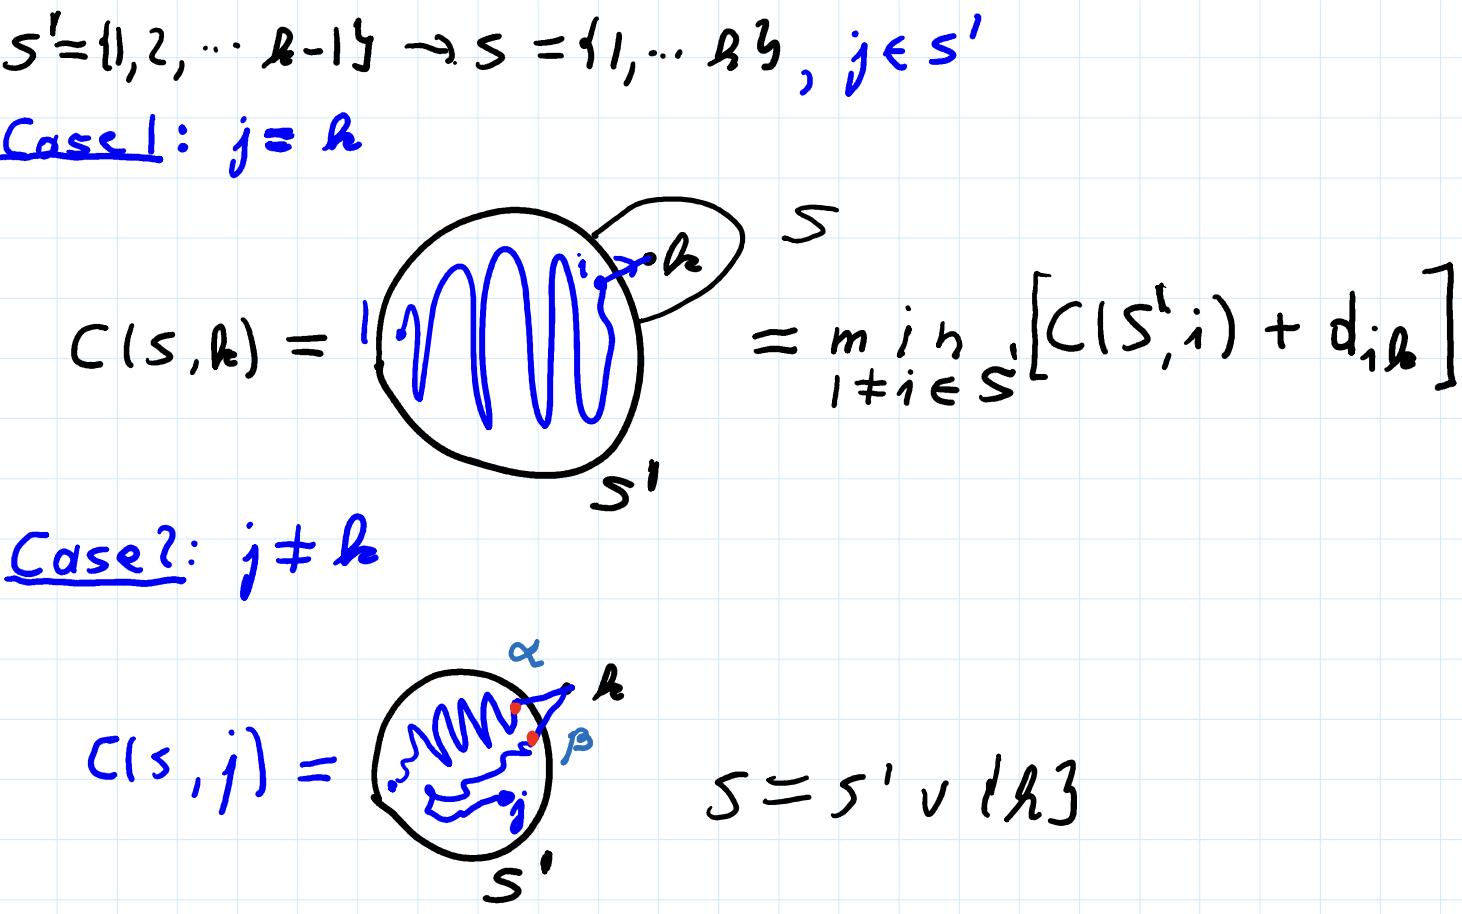 S' = {1, 2, ... k-1} → S = {1, ... k}, j ∈ S'
Case 1: j = k
S
i k
1
C(S, k) = = min [C(S', i) + d_ik]
1 ≠ i ∈ S'
S'
Case 2: j ≠ k
α
k
β
C(S, j) =
j
S = S' ∪ {k}
S'